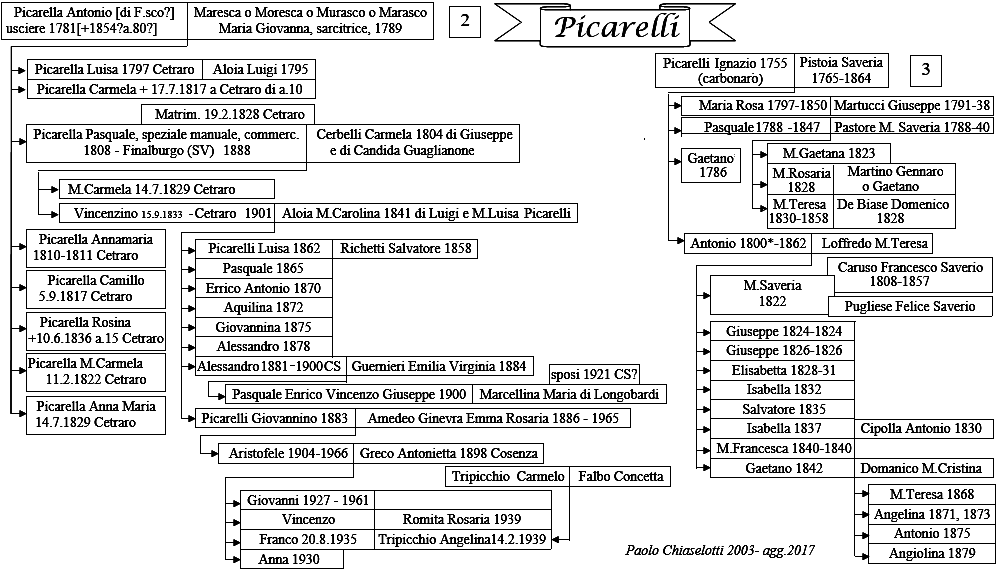 Picarelli
2
Picarella Antonio [di F.sco?]
usciere 1781[+1854?a.80?]
Maresca o Moresca o Murasco o Marasco
Maria Giovanna, sarcitrice, 1789
Picarella Luisa 1797 Cetraro
Aloia Luigi 1795
Picarella Carmela + 17.7.1817 a Cetraro di a.10
Matrim. 19.2.1828 Cetraro
Picarella Pasquale, speziale manuale, commerc.
1808 - Finalburgo (SV) 1888
Cerbelli Carmela 1804 di Giuseppe
e di Candida Guaglianone
M.Carmela 14.7.1829 Cetraro
Vincenzino 15.9.1833 - Cetraro 1901
Aloia M.Carolina 1841 di Luigi e M.Luisa Picarelli
Picarella Annamaria
1810-1811 Cetraro
Picarella Camillo
5.9.1817 Cetraro
Picarella Rosina
+10.6.1836 a.15 Cetraro
Picarella M.Carmela
11.2.1822 Cetraro
Picarella Anna Maria
14.7.1829 Cetraro
Picarelli Luisa 1862
Richetti Salvatore 1858
Pasquale 1865
Errico Antonio 1870
Aquilina 1872
Giovannina 1875
Alessandro 1878
Alessandro 1881-1900CS
Guernieri Emilia Virginia 1884
sposi 1921 CS?
Pasquale Enrico Vincenzo Giuseppe 1900
Marcellina Maria di Longobardi
Picarelli Giovannino 1883
Amedeo Ginevra Emma Rosaria 1886 - 1965
Aristofele 1904-1966
Greco Antonietta 1898 Cosenza
Tripicchio Carmelo
Falbo Concetta
Giovanni 1927 - 1961
Vincenzo
Romita Rosaria 1939
Franco 20.8.1935
Tripicchio Angelina14.2.1939
Anna 1930
3
Picarelli Ignazio 1755
(carbonaro)
Pistoia Saveria
1765-1864
Maria Rosa 1797-1850
Martucci Giuseppe 1791-38
Pasquale 1788 -1847
Pastore M. Saveria 1788-40
Gaetano
1786
M.Gaetana 1823
M.Rosaria
1828
Martino Gennaro
o Gaetano
M.Teresa
1830-1858
De Biase Domenico
1828
Antonio 1800*-1862
Loffredo M.Teresa
M.Saveria
1822
Caruso Francesco Saverio
1808-1857
Pugliese Felice Saverio
Giuseppe 1824-1824
Giuseppe 1826-1826
Elisabetta 1828-31
Isabella 1832
Salvatore 1835
Isabella 1837
Cipolla Antonio 1830
M.Francesca 1840-1840
Gaetano 1842
Domanico M.Cristina
M.Teresa 1868
Angelina 1871, 1873
Antonio 1875
Angiolina 1879
Paolo Chiaselotti 2003- agg.2017